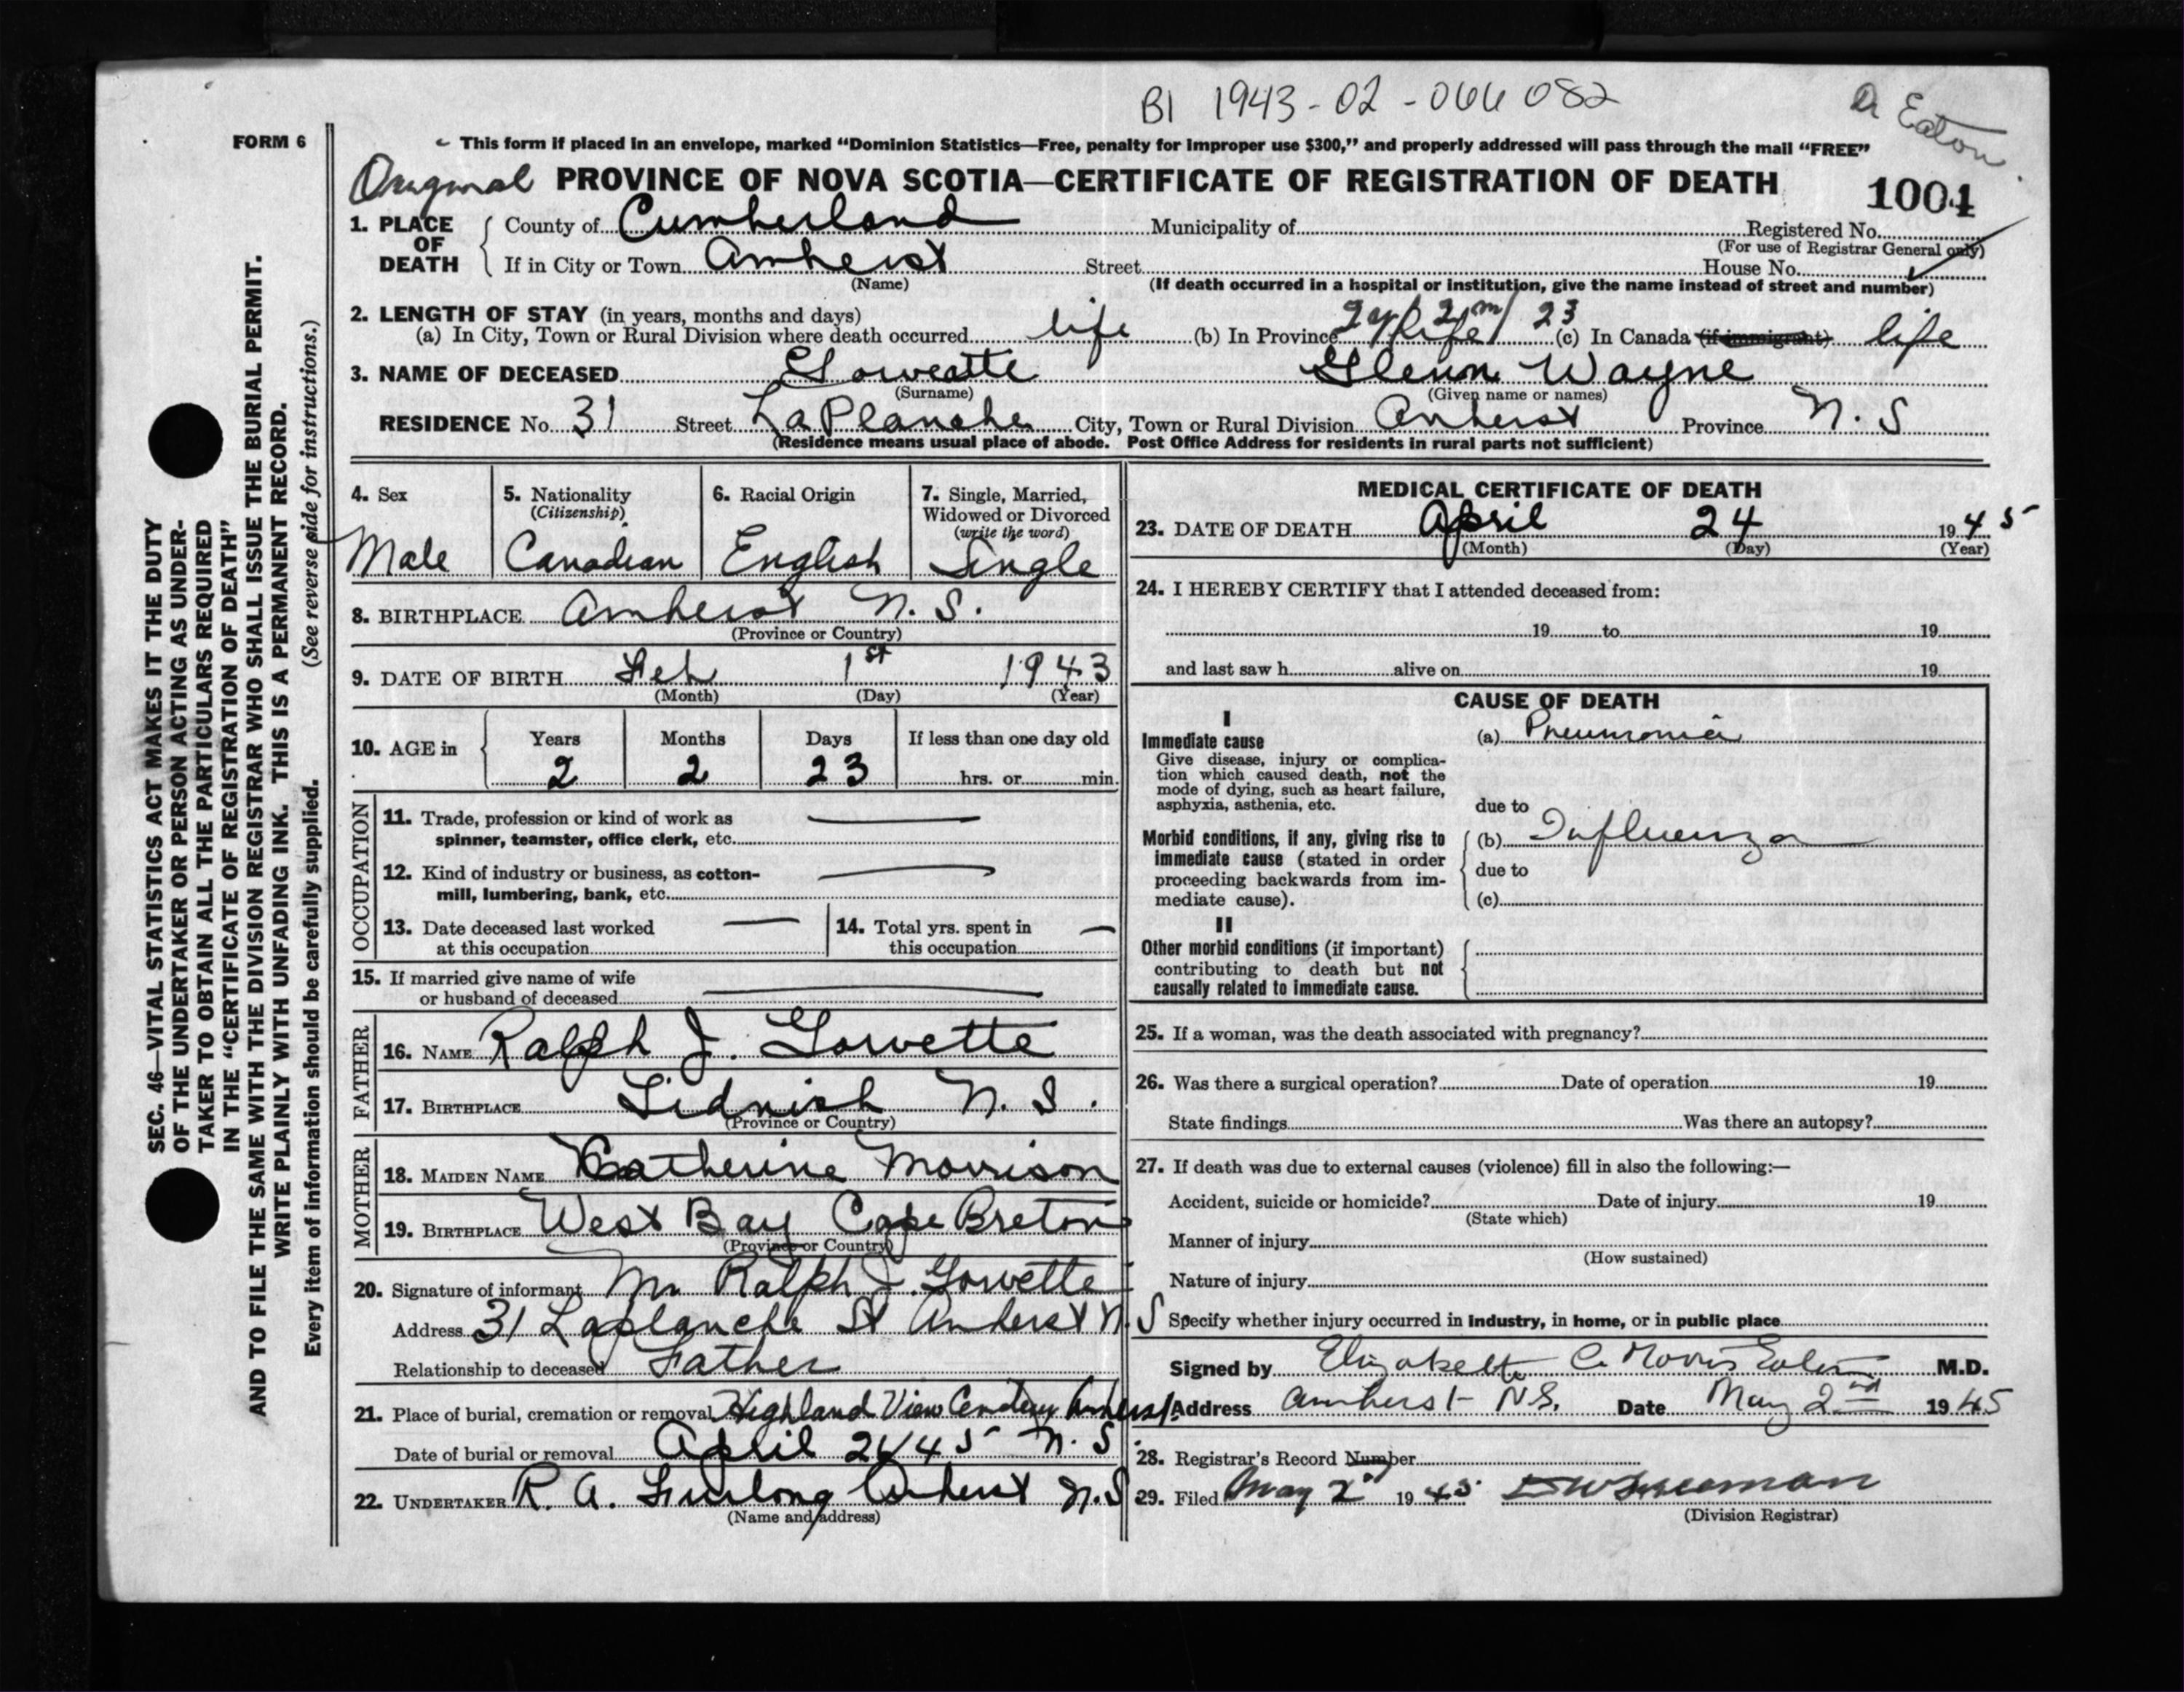 BI 1943-02-066082
Dr Eaton
FORM 6
This form if placed in an envelope, marked “Dominion Statistics—Free, penalty for improper use $300,” and properly addressed will pass through the mail “FREE”
Original PROVINCE OF NOVA SCOTIA—CERTIFICATE OF REGISTRATION OF DEATH 1004
1. PLACE OF DEATH County of Cumberland Municipality of Registered No.
(For use of Registrar General only)
If in City or Town Amherst Street House No.
(Name) (If death occurred in a hospital or institution, give the name instead of street and number)
2. LENGTH OF STAY (in years, months and days) 2y 2m 23
(a) In City, Town or Rural Division where death occurred life (b) In Province life (c) In Canada (if immigrant) life
3. NAME OF DECEASED Gowette Glenn Wayne
(Surname) (Given name or names)
RESIDENCE No. 31 Street LaPlanche City, Town or Rural Division Amherst Province N. S
(Residence means usual place of abode. Post Office Address for residents in rural parts not sufficient)
4. Sex 5. Nationality 6. Racial Origin 7. Single, Married,
(Citizenship) Widowed or Divorced
(write the word)
Male Canadian English Single
8. BIRTHPLACE Amherst N. S.
(Province or Country)
9. DATE OF BIRTH Feb 1st 1943
(Month) (Day) (Year)
10. AGE in Years Months Days If less than one day old
2 2 23 hrs. or min.
OCCUPATION
11. Trade, profession or kind of work as
spinner, teamster, office clerk, etc.
12. Kind of industry or business, as cotton-
mill, lumbering, bank, etc.
13. Date deceased last worked 14. Total yrs. spent in
at this occupation this occupation
15. If married give name of wife
or husband of deceased
FATHER
16. NAME Ralph J. Gowette
17. BIRTHPLACE Lidnish N. S.
(Province or Country)
MOTHER
18. MAIDEN NAME Catherine Morrison
19. BIRTHPLACE West Bay Cape Breton
(Province or Country)
20. Signature of informant Mr Ralph J. Gowette
Address 31 Laplanche St Amherst N. S
Relationship to deceased Father
21. Place of burial, cremation or removal Highland View Cemetery Amherst
Date of burial or removal April 26/45 N. S.
22. UNDERTAKER R. A. Furlong Amherst N.S
(Name and address)
MEDICAL CERTIFICATE OF DEATH
23. DATE OF DEATH April 24 1945
(Month) (Day) (Year)
24. I HEREBY CERTIFY that I attended deceased from:
19 to 19
and last saw h alive on 19
CAUSE OF DEATH
I
Immediate cause (a) Pneumonia
Give disease, injury or complica-
tion which caused death, not the
mode of dying, such as heart failure,
asphyxia, asthenia, etc. due to
Morbid conditions, if any, giving rise to (b) Influenza
immediate cause (stated in order
proceeding backwards from im- due to
mediate cause). (c)
II
Other morbid conditions (if important)
contributing to death but not
causally related to immediate cause.
25. If a woman, was the death associated with pregnancy?
26. Was there a surgical operation? Date of operation 19
State findings Was there an autopsy?
27. If death was due to external causes (violence) fill in also the following:—
Accident, suicide or homicide? Date of injury 19
(State which)
Manner of injury
(How sustained)
Nature of injury
Specify whether injury occurred in industry, in home, or in public place
Signed by Elizabeth C. Morris Eaton M.D.
Address Amherst N.S. Date May 2nd 1945
28. Registrar's Record Number
29. Filed May 2 1945
(Division Registrar)
SEC. 46—VITAL STATISTICS ACT MAKES IT THE DUTY
OF THE UNDERTAKER OR PERSON ACTING AS UNDER-
TAKER TO OBTAIN ALL THE PARTICULARS REQUIRED
IN THE “CERTIFICATE OF REGISTRATION OF DEATH”
AND TO FILE THE SAME WITH THE DIVISION REGISTRAR WHO SHALL ISSUE THE BURIAL PERMIT.
WRITE PLAINLY WITH UNFADING INK. THIS IS A PERMANENT RECORD.
Every item of information should be carefully supplied. (See reverse side for instructions.)